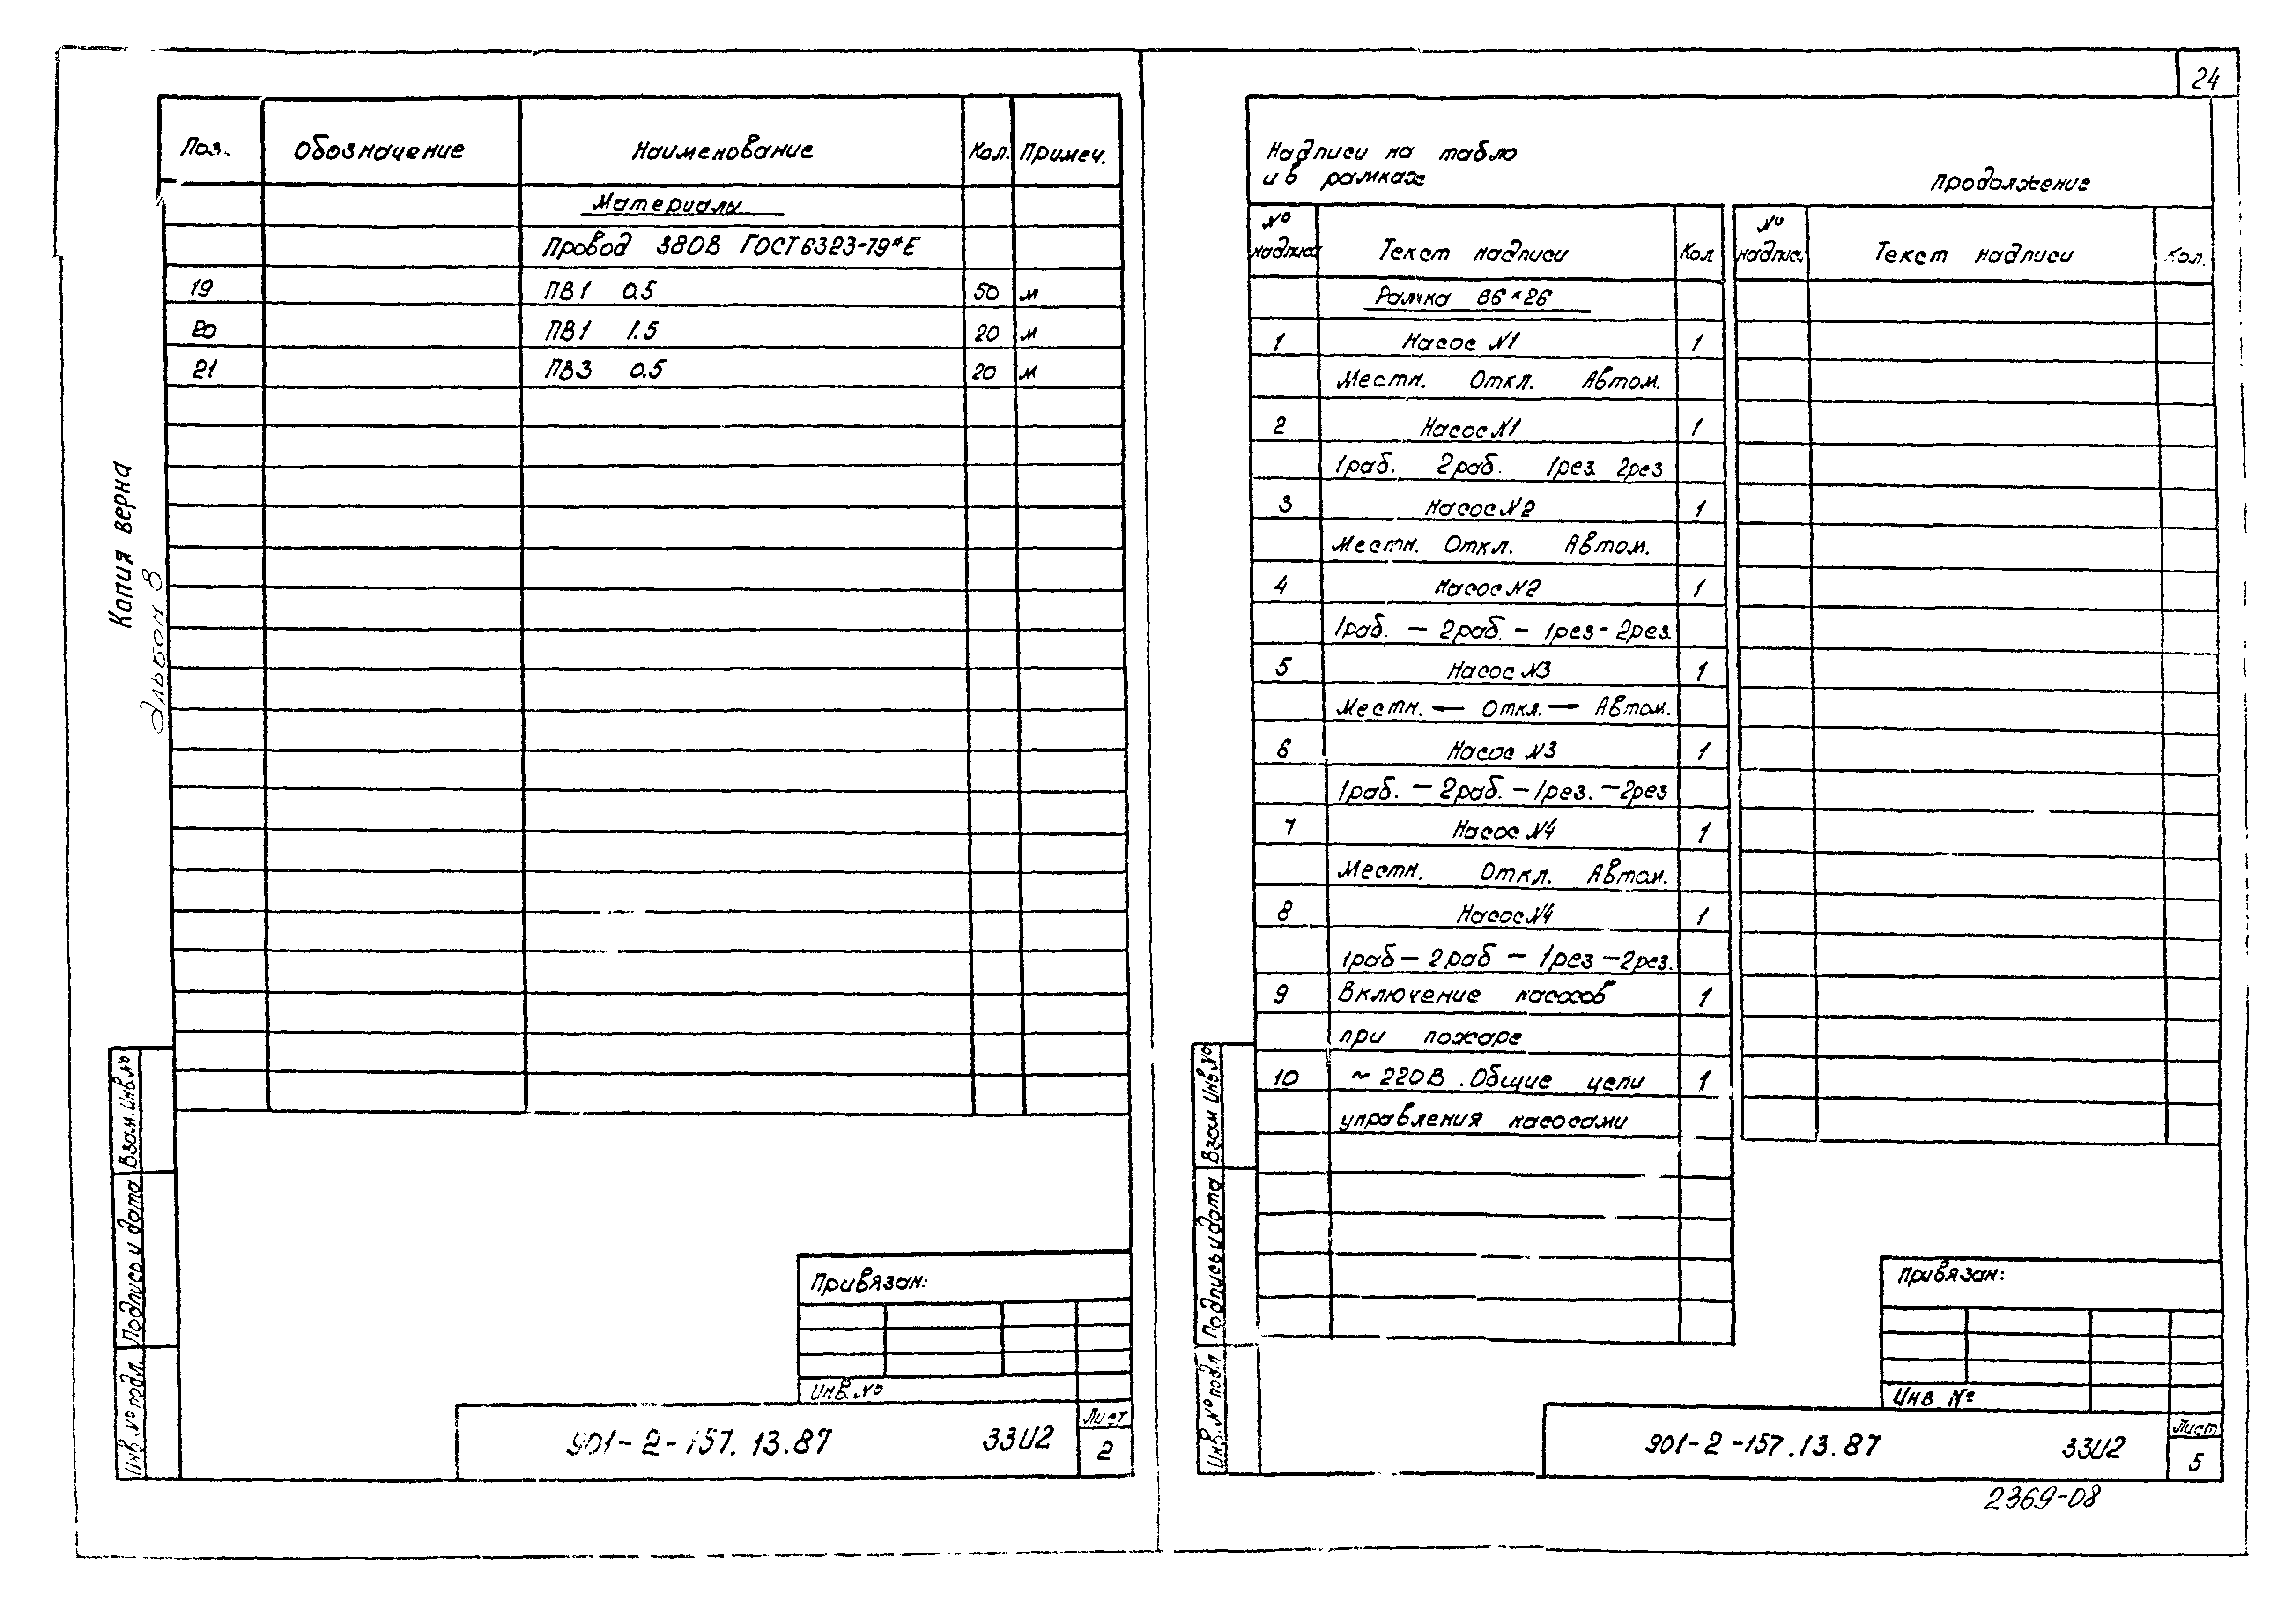 24
Поз. Обозначение Наименование Кол. Примеч.
Материалы
Провод 380В ГОСТ6323-79*Е
19 ПВ1 0.5 50 м
20 ПВ1 1.5 20 м
21 ПВ3 0.5 20 м
Копия верна
Альбом 8
Взам.инв.№
Подпись и дата
Инв.№ подл.
Привязан:
Инв.№
901-2-157.13.87 ЭЗИ2
Лист
2
Надписи на табло
и в рамках
Продолжение
№ надписи Текст надписи Кол. № надписи Текст надписи Кол.
Рамка 86×26
1 Насос N1 1
Местн. Откл. Автом.
2 Насос N1 1
1раб. 2раб. 1рез. 2рез
3 Насос N2 1
Местн. Откл. Автом.
4 Насос N2 1
1раб. — 2раб. — 1рез - 2рез.
5 Насос N3 1
Местн. ← Откл. → Автом.
6 Насос N3 1
1раб. — 2раб. — 1рез. — 2рез
7 Насос N4 1
Местн. Откл. Автом.
8 Насос N4 1
1раб — 2раб — 1рез — 2рез.
9 Включение насосов 1
при пожаре
10 ~ 220В. Общие цепи 1
управления насосами
Взам Инв.№
Подпись и дата
Инв.№ подл
Привязан:
Инв №
901-2-157.13.87 ЭЗИ2
Лист
5
2369-08